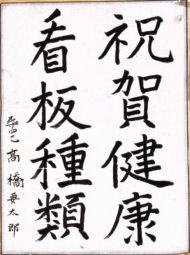 祝賀健康
看板種類
高橋要太郎